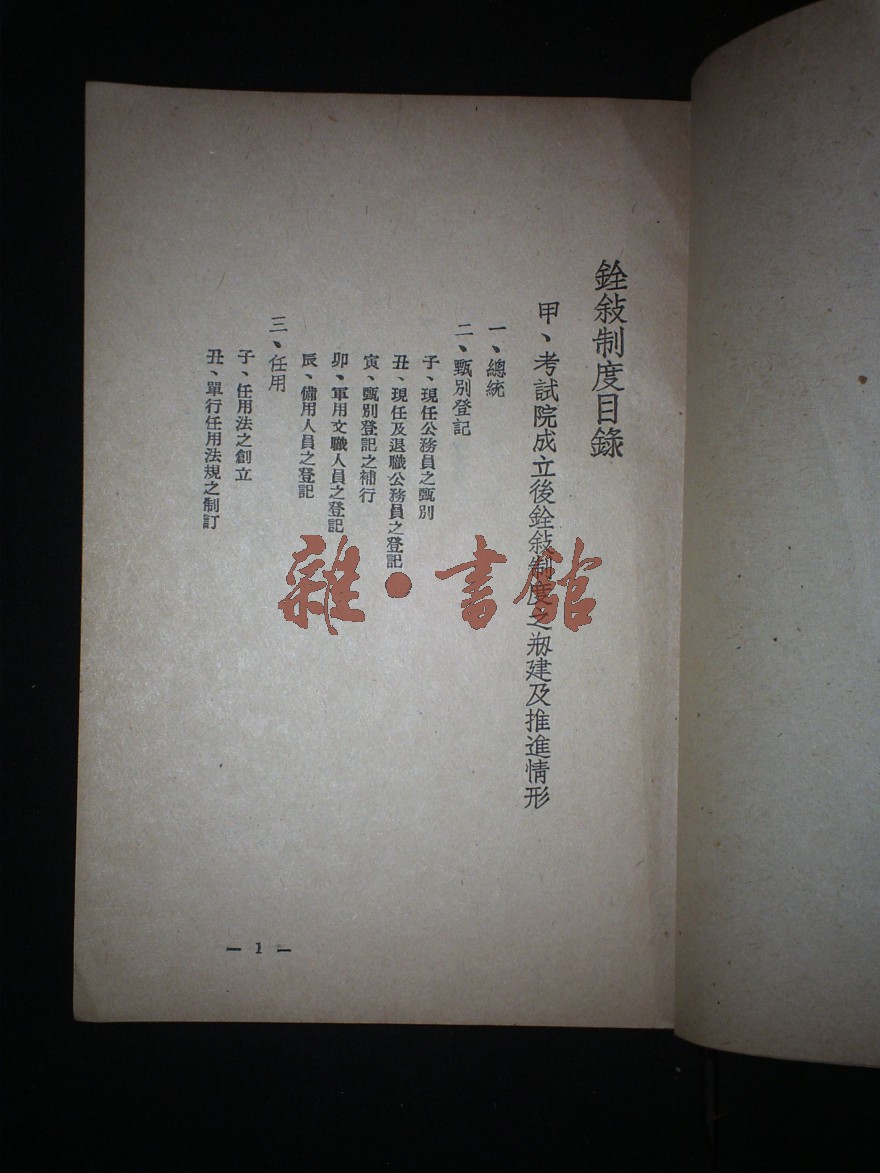 銓敍制度目錄
甲、考試院成立後銓敍制度之刱建及推進情形
一、總統
二、甄別登記
子、現任公務員之甄別
丑、現任及退職公務員之登記
寅、甄別登記之補行
卯、軍用文職人員之登記
辰、備用人員之登記
三、任用
子、任用法之創立
丑、單行任用法規之制訂
— 1 —
雜·書館